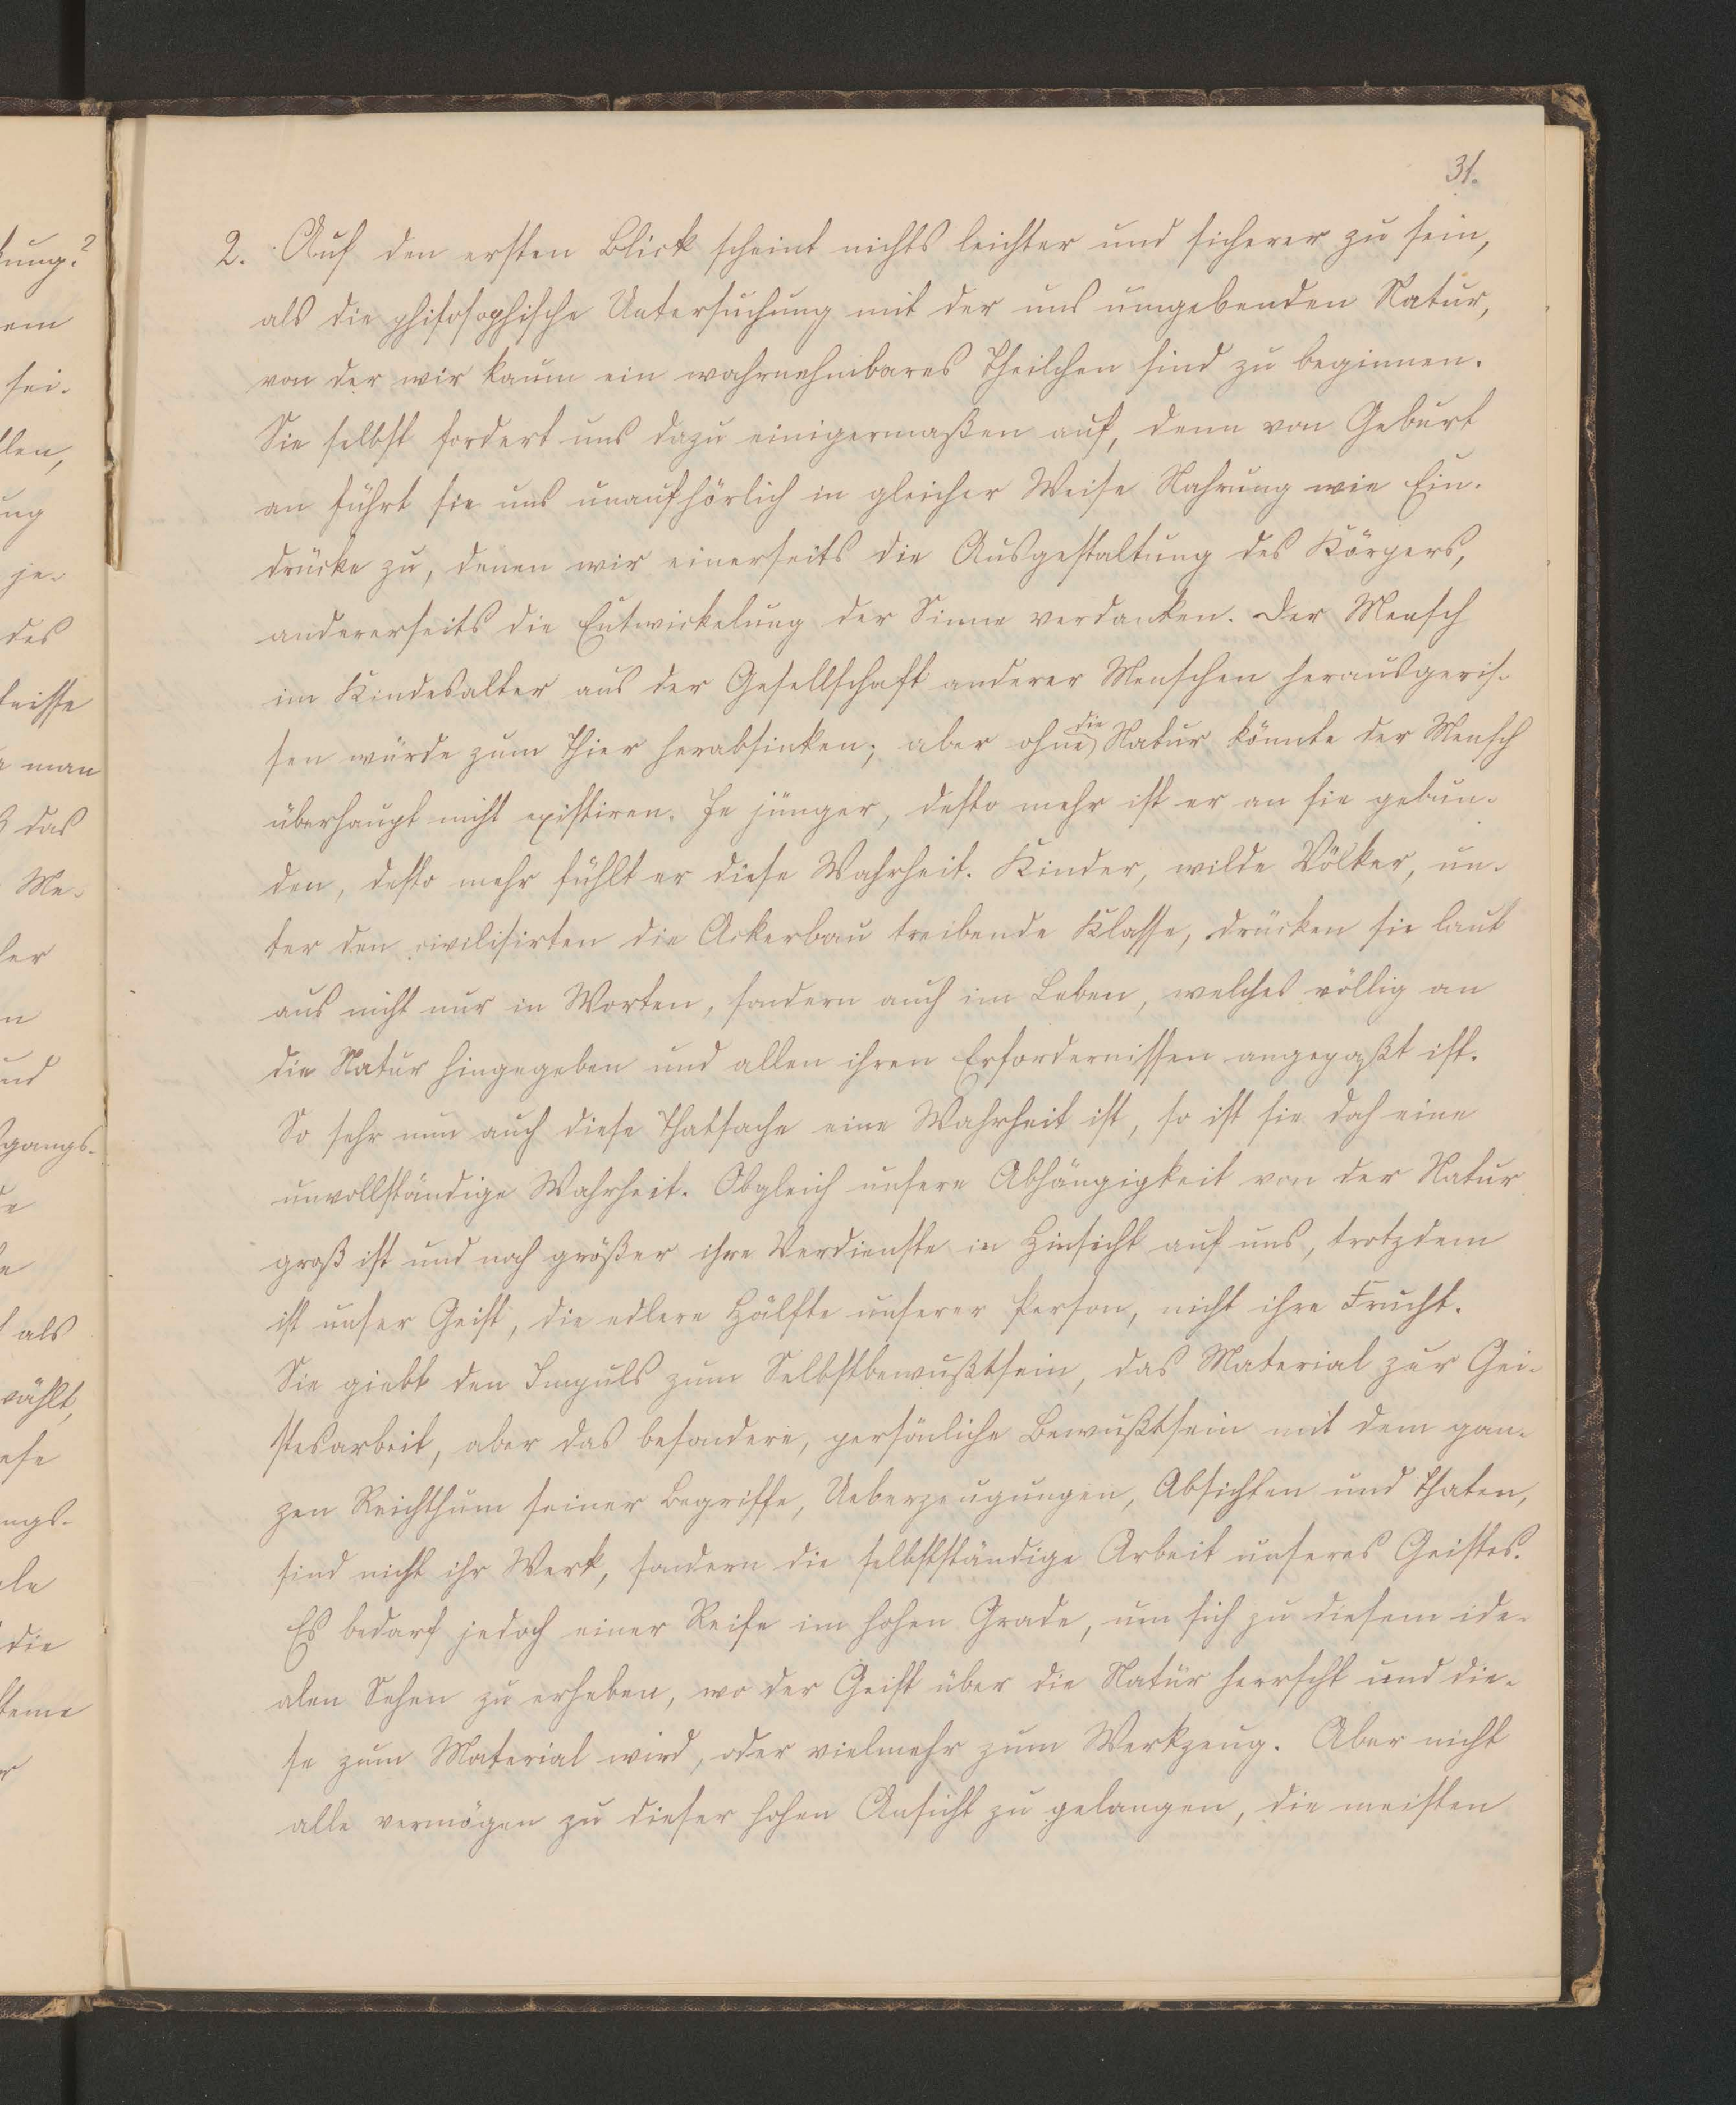 31.
2. Auf den ersten Blick scheint nichts leichter und sicherer zu sein,
als die philosophische Untersuchung mit der uns umgebenden Natur,
von der wir kaum ein wahrnehmbares Theilchen sind zu beginnen.
Sie selbst fordert uns dazu einigermaßen auf, denn von Geburt
an führt sie uns unaufhörlich in gleicher Weise Nahrung wie Ein-
drücke zu, denen wir einerseits die Ausgestaltung des Körpers,
andererseits die Entwickelung der Sinne verdanken. Der Mensch
im Kindesalter aus der Gesellschaft anderer Menschen herausgeris-
sen würde zum Thier herabsinken; aber ohne die Natur könnte der Mensch
überhaupt nicht existiren. Je jünger, desto mehr ist er an sie gebun-
den, desto mehr fühlt er diese Wahrheit. Kinder, wilde Völker, un-
ter den civilisirten die Ackerbau treibende Klasse, drücken sie laut
aus nicht nur in Worten, sondern auch im Leben, welches völlig an
die Natur hingegeben und allen ihren Erfordernissen angepaßt ist.
So sehr nun auch diese Thatsache eine Wahrheit ist, so ist sie doh eine
unvollständige Wahrheit. Obgleich unsere Abhängigkeit von der Natur
groß ist und noch größer ihre Verdienste in Hinsicht auf uns, trotzdem
ist unser Geist, die edlere Hälfte unserer Person, nicht ihre Frucht.
Sie giebt den Impuls zum Selbstbewußtsein, das Material zur Gei-
stesarbeit, aber das besondere, persönliche Bewußtsein mit dem gan-
zen Reichthum seiner Begriffe, Ueberzeugungen, Absichten und Thaten,
sind nicht ihr Werk, sondern die selbstständige Arbeit unseres Geistes.
Es bedarf jedoch einer Reife im hohen Grade, um sich zu diesem ide-
alen Sehen zu erheben, wo der Geist über die Natur herrscht und die-
se zum Material wird, oder vielmehr zum Werkzeug. Aber nicht
alle vermögen zu dieser hohen Ansicht zu gelangen, die meisten